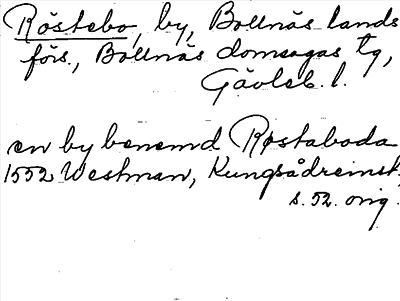 Röstebo, by, Bollnäs lands
förs., Bollnäs domsagas tg,
Gävleb. l.
en by benemd Røstaboda
1552 Westman, Kungsådreinst.
s. 52. orig.